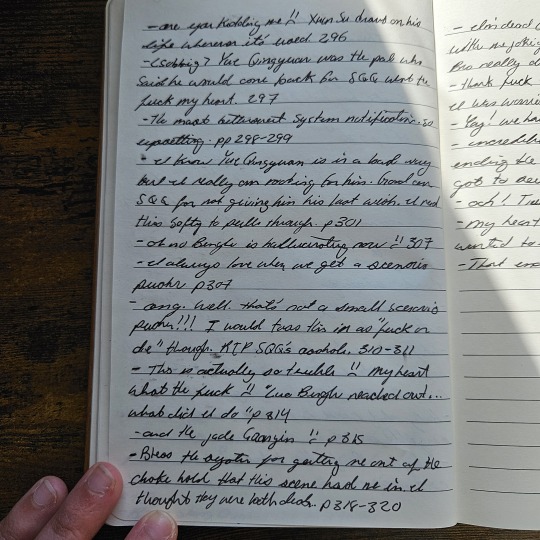 - are you kidding me !! Xuan Su draws on his
life whenever it's used 296
- (sobbing) Yue Qingyuan was the pal who
said he would come back for SQQ what the
fuck my heart. 297
- The most bittersweet system notification. so
upsetting. pp 298-299
- I know Yue Qingyuan is in a bad way
but I really am rooting for him. Good on
SQQ for not giving him his last wish. I need
this softy to pull through. p 301
- oh no Binghe is hallucinating now !! 307
- I always love when we get a scenario
pusher p307
- omg. well. that's not a small scenario
pusher!!! I would toss this in as "fuck or
die" though. RIP SQQ's asshole. 310-311
- This is actually so terrible !! my heart
what the fuck !! "Luo Binghe reached out...
what did I do" p 314
- and the jade Guanyin !! p 315
- Bless the system for getting me out of the
choke hold that this scene had me in. I
thought they were both dead. p 318-320
- I'm dead
with me joking
Bro really
- thank fuck
I was
- Yay! we
-
ending the
got to
- ooh!
- my heart
wanted to
- That